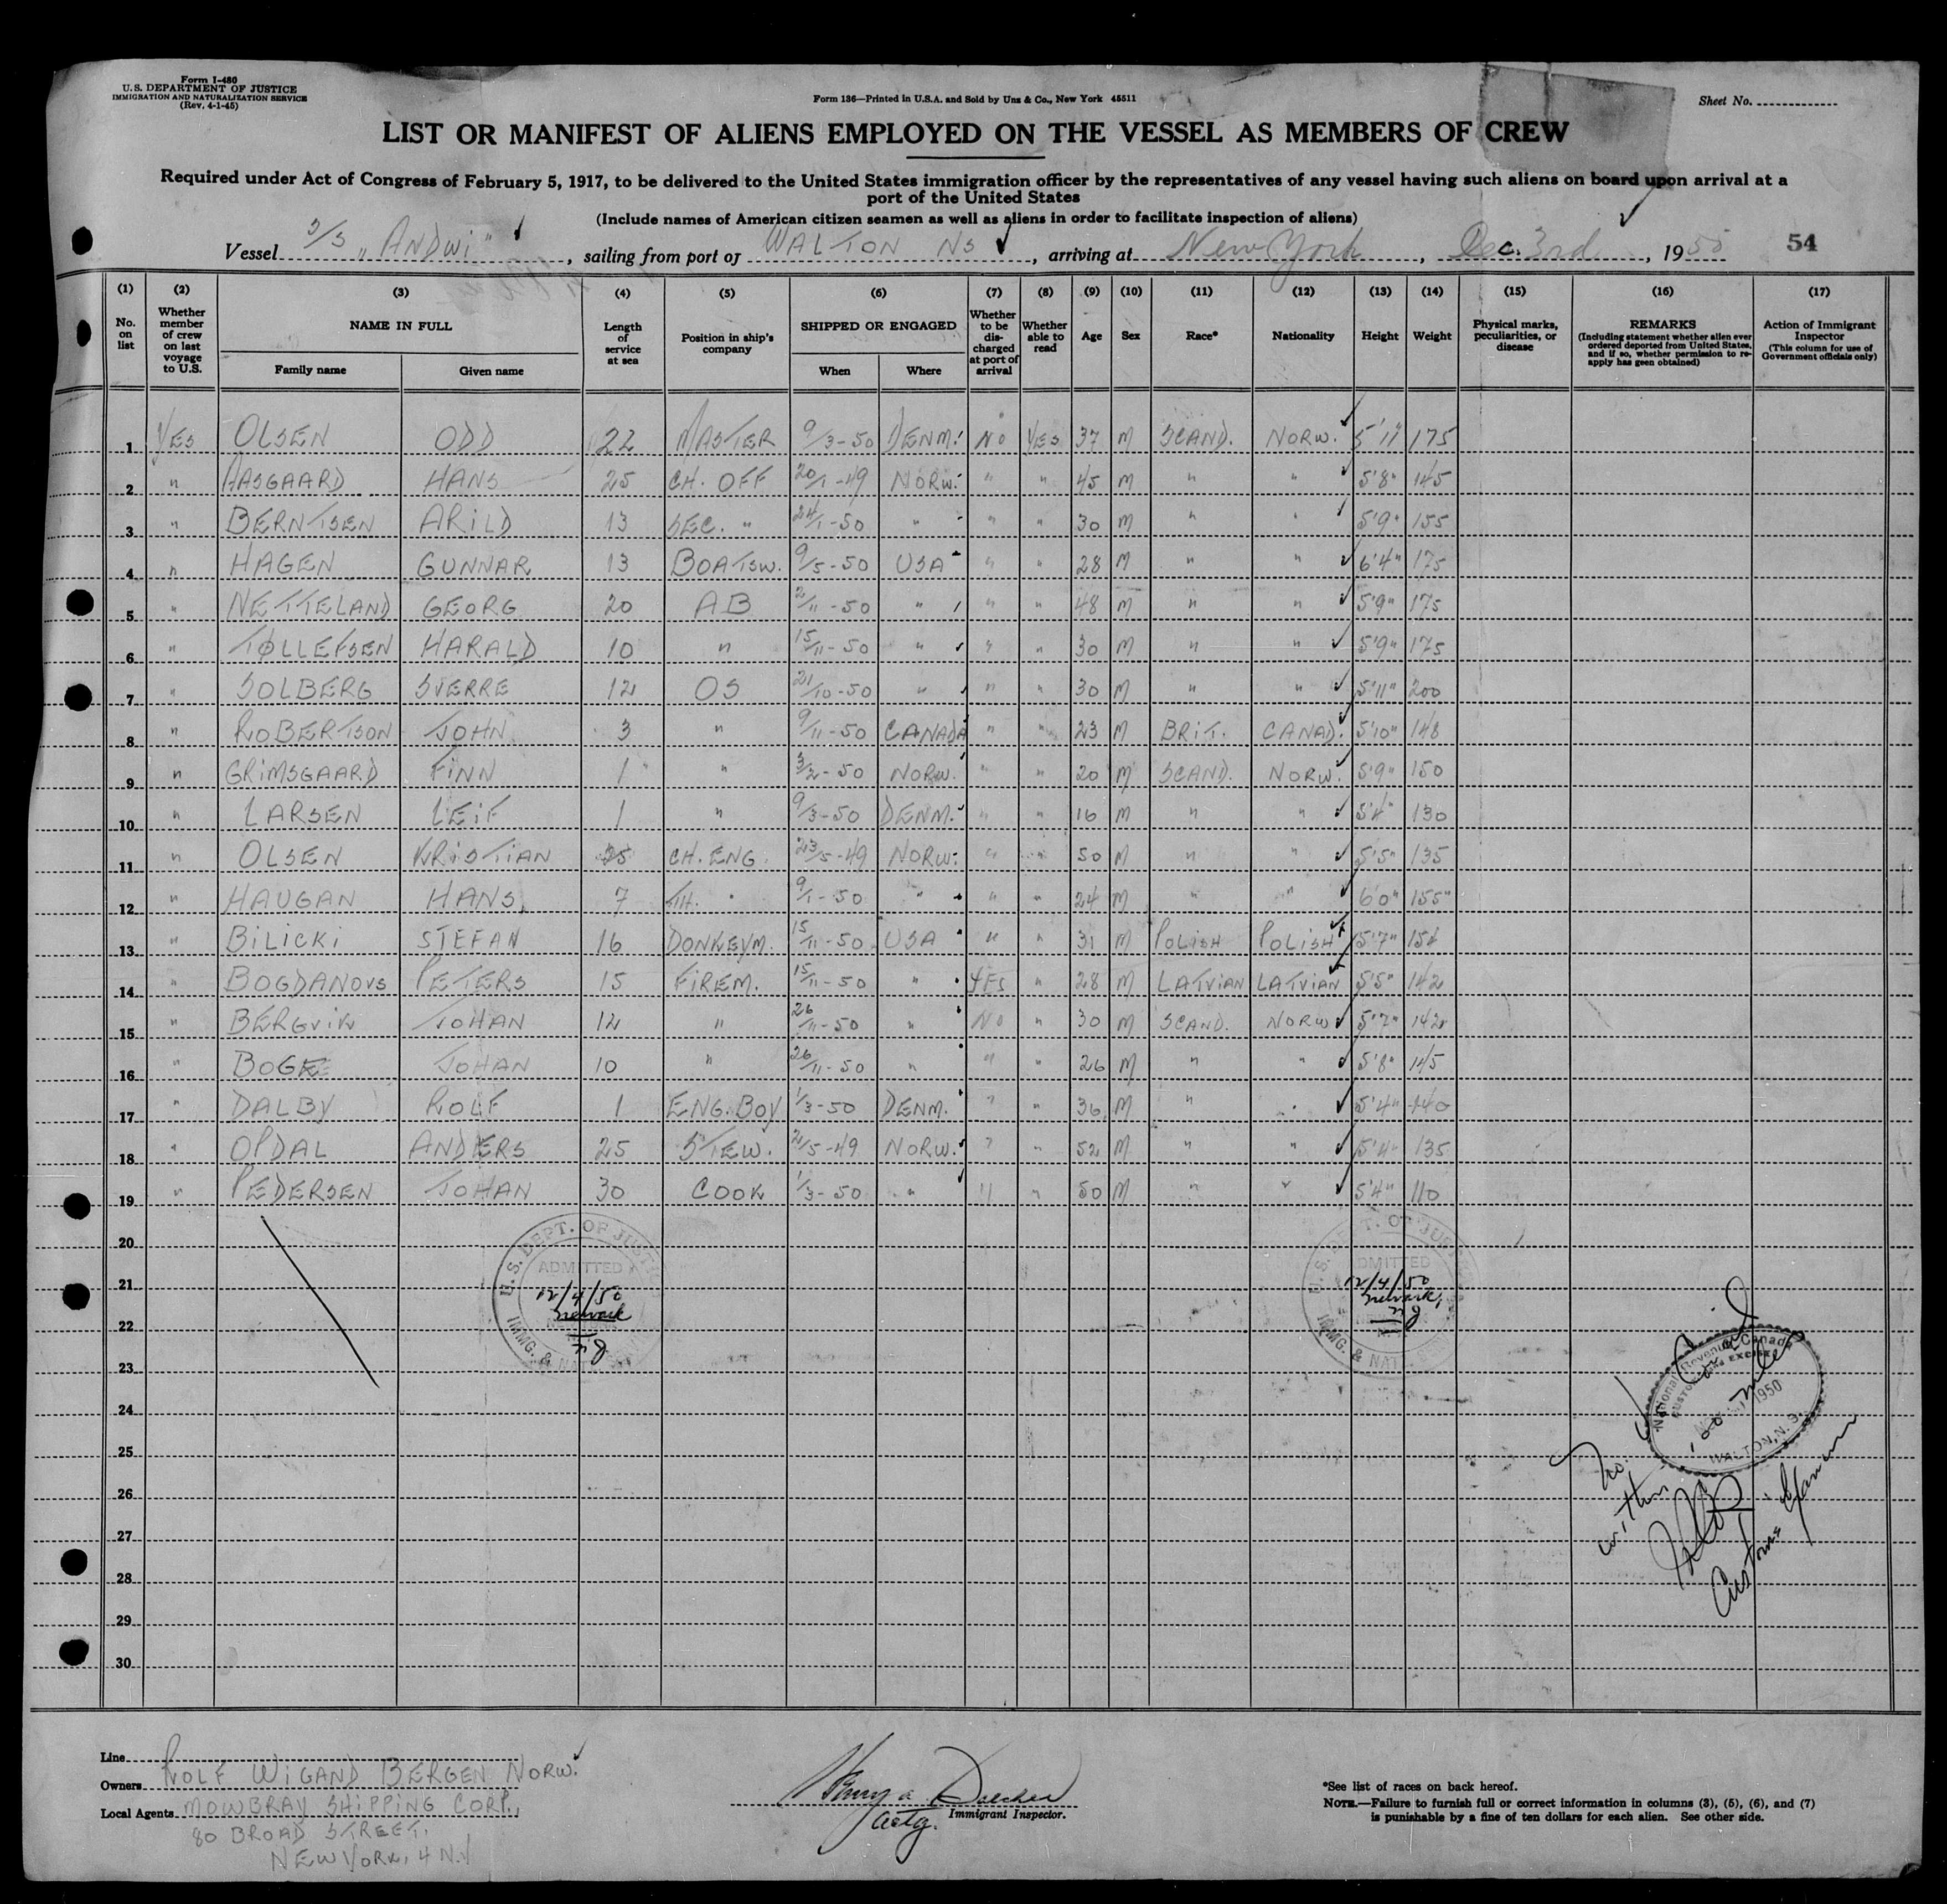 Form I-480
U.S. DEPARTMENT OF JUSTICE
IMMIGRATION AND NATURALIZATION SERVICE
(Rev. 4-1-45)
Form 136—Printed in U.S.A. and Sold by Unz & Co., New York 45511
Sheet No.
LIST OR MANIFEST OF ALIENS EMPLOYED ON THE VESSEL AS MEMBERS OF CREW
Required under Act of Congress of February 5, 1917, to be delivered to the United States immigration officer by the representatives of any vessel having such aliens on board upon arrival at a
port of the United States
(Include names of American citizen seamen as well as aliens in order to facilitate inspection of aliens)
Vessel S/S "ANDWI", sailing from port of WALTON NS, arriving at New York, Dec. 3rd, 1950 54
(1) No. on list
(2) Whether member of crew on last voyage to U.S.
(3) NAME IN FULL Family name Given name
(4) Length of service at sea
(5) Position in ship's company
(6) SHIPPED OR ENGAGED When Where
(7) Whether to be discharged at port of arrival
(8) Whether able to read
(9) Age
(10) Sex
(11) Race*
(12) Nationality
(13) Height
(14) Weight
(15) Physical marks, peculiarities, or disease
(16) REMARKS (Including statement whether alien ever ordered deported from United States, and if so, whether permission to re-apply has geen obtained)
(17) Action of Immigrant Inspector (This column for use of Government officials only)
1 YES OLSEN ODD 22 MASTER 9/3-50 DENM. NO YES 37 M SCAND. NORW. 5'11" 175
2 " AASGAARD HANS 25 CH. OFF 20/1-49 NORW. " " 45 M " " 5'8" 145
3 " BERNTSEN ARILD 13 SEC. " 24/1-50 " " " 30 M " " 5'9" 155
4 " HAGEN GUNNAR 13 BOATSW. 9/5-50 USA " " 28 M " " 6'4" 175
5 " NETTELAND GEORG 20 AB 2/11-50 " " " 48 M " " 5'9" 175
6 " TØLLEFSEN HARALD 10 " 15/11-50 " " " 30 M " " 5'9" 175
7 " SOLBERG SVERRE 12 OS 21/10-50 " " " 30 M " " 5'11" 200
8 " ROBERTSON JOHN 3 " 9/11-50 CANADA " " 23 M BRIT. CANAD. 5'10" 148
9 " GRIMSGAARD FINN 1 " 3/2-50 NORW. " " 20 M SCAND. NORW. 5'9" 150
10 " LARSEN LEIF 1 " 9/3-50 DENM. " " 16 M " " 5'4" 130
11 " OLSEN KRISTIAN 25 CH. ENG. 23/5-49 NORW. " " 50 M " " 5'5" 135
12 " HAUGAN HANS 7 TH. " 9/1-50 " " " 24 M " " 6'0" 155
13 " BILICKI STEFAN 16 DONKEYM. 15/11-50 USA " " 31 M POLISH POLISH 5'7" 154
14 " BOGDANOVS PETERS 15 FIREM. 15/11-50 " YES " 28 M LATVIAN LATVIAN 5'5" 142
15 " BERGVIK JOHAN 12 " 26/11-50 " NO " 30 M SCAND. NORW 5'7" 142
16 " BOGE JOHAN 10 " 26/11-50 " " " 26 M " " 5'8" 145
17 " DALBY ROLF 1 ENG. BOY 1/3-50 DENM. " " 36 M " " 5'4" 140
18 " OPDAL ANDERS 25 STEW. 2/5-49 NORW. " " 52 M " " 5'4" 135
19 " PEDERSEN JOHAN 30 COOK 1/3-50 " " " 50 M " " 5'4" 110
20
21
22
23
24
25
26
27
28
29
30
U.S. DEPT. OF JUSTICE
ADMITTED
12/4/50
Newark
IMMG. & NAT.
U.S. DEPT. OF JUSTICE
ADMITTED
12/4/50
Newark
IMMG. & NAT.
National Revenue Canada
CUSTOMS AND EXCISE
1950
WALTON, N.S.
No
within
100 miles
Customs
Line
Owners ROLF WIGAND BERGEN NORW.
Local Agents MOWBRAY SHIPPING CORP.,
80 BROAD STREET.
NEW YORK, 4 N.Y
Henry a
actg. Immigrant Inspector.
*See list of races on back hereof.
NOTE.—Failure to furnish full or correct information in columns (3), (5), (6), and (7)
is punishable by a fine of ten dollars for each alien. See other side.